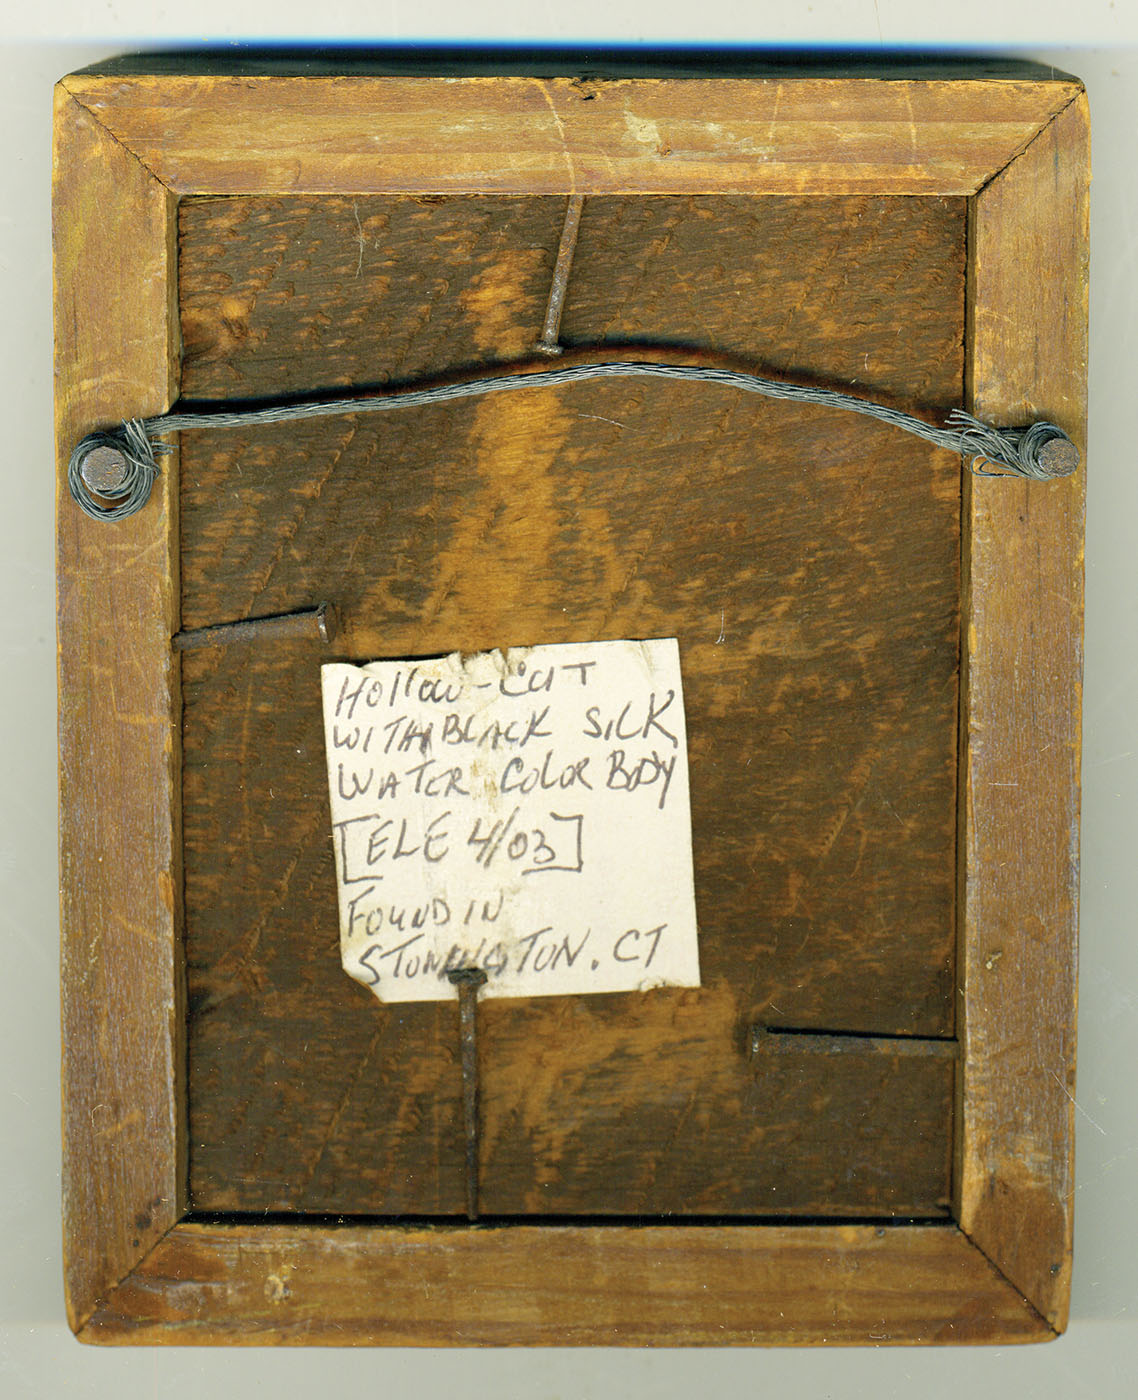 Hollow-Cut
WITH BLACK SILK
WATER COLOR BODY
[ELE 4/03]
FOUND IN
STONINGTON. CT